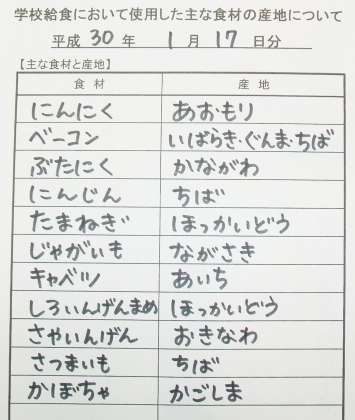 学校給食において使用した主な食材の産地について
平成 30 年 1 月 17 日分
【主な食材と産地】
食材 産地
にんにく あおもり
ベーコン いばらき・ぐんま・ちば
ぶたにく かながわ
にんじん ちば
たまねぎ ほっかいどう
じゃがいも ながさき
キャベツ あいち
しろいんげんまめ ほっかいどう
さやいんげん おきなわ
さつまいも ちば
かぼちゃ かごしま